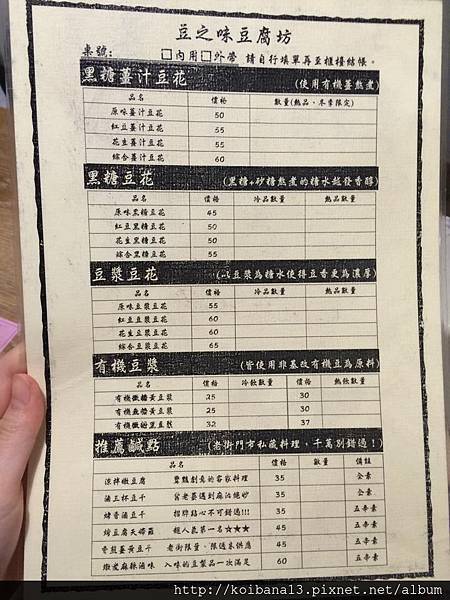 豆之味豆腐坊
桌號: □內用□外帶 請自行填單再至櫃檯結帳。
黑糖薑汁豆花 (使用有機薑熬煮)
品名 價格 數量(熱品、冬季限定)
原味薑汁豆花 50
紅豆薑汁豆花 55
花生薑汁豆花 55
綜合薑汁豆花 60
黑糖豆花 (黑糖+砂糖熬煮的糖水越發香醇)
品名 價格 冷品數量 熱品數量
原味黑糖豆花 45
紅豆黑糖豆花 50
花生黑糖豆花 50
綜合黑糖豆花 55
豆漿豆花 (以豆漿為糖水使得豆香更為濃厚)
品名 價格 冷品數量 熱品數量
原味豆漿豆花 55
紅豆豆漿豆花 60
花生豆漿豆花 60
綜合豆漿豆花 65
有機豆漿 (皆使用非基改有機豆為原料)
品名 價格 冷飲數量 價格 熱飲數量
有機微糖黃豆漿 25 30
有機無糖黃豆漿 25 30
有機微糖黑豆漿 32 37
推薦鹹點 (老街門市私藏料理，千萬別錯過！)
品名 價格 數量 備註
涼拌嫩豆腐 豐點創意的客家料理 35 全素
滷三杯豆干 35 全素
烤香滷豆干 招牌點心不可錯過!!! 35 五辛素
烤豆腐天婦羅 超人氣第一名★★★ 45 五辛素
香煎薑黃豆干 老街限量、限週末供應 45 五辛素
嫩煮麻辣滷味 入味的豆製品一次滿足 60 五辛素
http://koibana13.pixnet.net/album